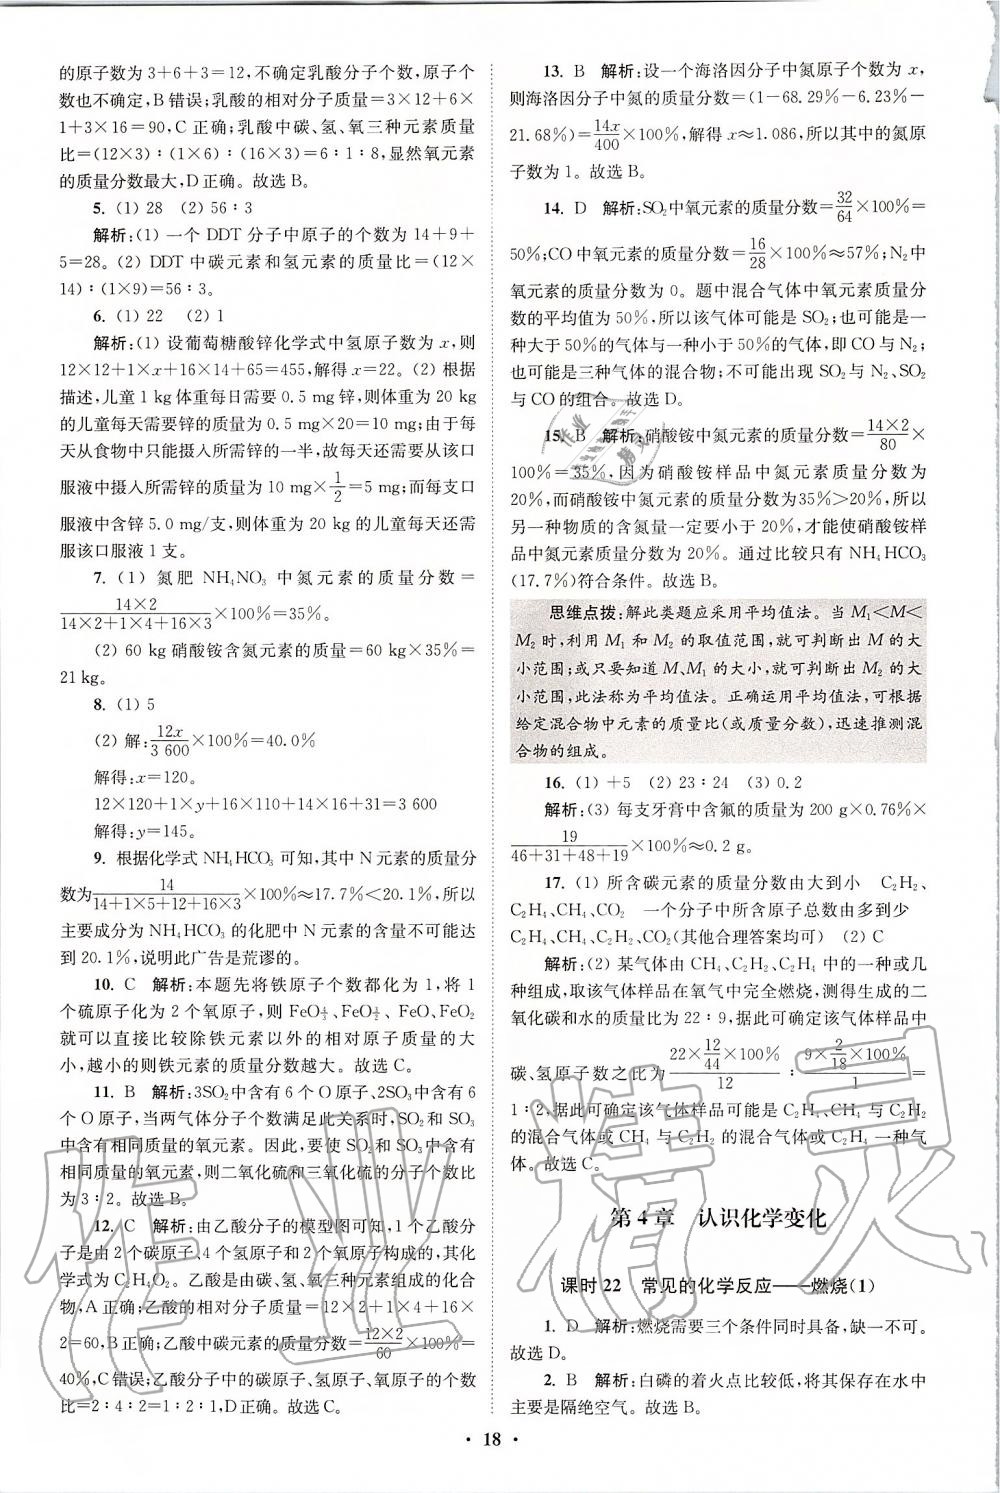 的原子数为3+6+3=12,不确定乳酸分子个数,原子个
数也不确定,B错误;乳酸的相对分子质量=3×12+6×
1+3×16=90,C正确;乳酸中碳、氢、氧三种元素质量
比=(12×3)∶(1×6)∶(16×3)=6∶1∶8,显然氧元素
的质量分数最大,D正确。故选B。
5. (1) 28 (2) 56∶3
解析:(1) 一个 DDT 分子中原子的个数为 14+9+
5=28。(2) DDT 中碳元素和氢元素的质量比=(12×
14)∶(1×9)=56∶3。
6. (1) 22 (2) 1
解析:(1) 设葡萄糖酸锌化学式中氢原子数为 x,则
12×12+1×x+16×14+65=455,解得x=22。(2) 根据
描述,儿童 1 kg 体重每日需要 0.5 mg 锌,则体重为 20 kg
的儿童每天需要锌的质量为 0.5 mg×20=10 mg;由于每
天从食物中只能摄入所需锌的一半,故每天还需从该口
服液中摄入所需锌的质量为 10 mg×1/2=5 mg;而每支口
服液中含锌 5.0 mg/支,则体重为 20 kg 的儿童每天还需
服该口服液 1 支。
7. (1) 氮肥 NH₄NO₃ 中氮元素的质量分数=
14×2/(14×2+1×4+16×3)×100%=35%。
(2) 60 kg 硝酸铵含氮元素的质量=60 kg×35%=
21 kg。
8. (1) 5
(2) 解:12x/3 600×100%=40.0%
解得:x=120。
12×120+1×y+16×110+14×16+31=3 600
解得:y=145。
9. 根据化学式 NH₄HCO₃ 可知,其中 N 元素的质量分
数为14/(14+1×5+12+16×3)×100%≈17.7%<20.1%,所以
主要成分为 NH₄HCO₃ 的化肥中 N 元素的含量不可能达
到 20.1%,说明此广告是荒谬的。
10. C 解析:本题先将铁原子个数都化为 1,将 1
个硫原子化为 2 个氧原子,则 FeO4/3、FeO3/2、FeO、FeO₂
就可以直接比较除铁元素以外的相对原子质量的大
小,越小的则铁元素的质量分数越大。故选 C。
11. B 解析:3SO₂中含有 6 个 O 原子、2SO₃中含有
6 个 O 原子,当两气体分子个数满足此关系时,SO₂ 和 SO₃
中含有相同质量的氧元素。因此,要使 SO₂ 和 SO₃ 中含有
相同质量的氧元素,则二氧化硫和三氧化硫的分子个数比
为 3∶2。故选 B。
12. C 解析:由乙酸分子的模型图可知,1 个乙酸分
子是由 2 个碳原子、4 个氢原子和 2 个氧原子构成的,其化
学式为 C₂H₄O₂。乙酸是由碳、氢、氧三种元素组成的化合
物,A 正确;乙酸的相对分子质量=12×2+1×4+16×
2=60,B 正确;乙酸中碳元素的质量分数=12×2/60×100%=
40%,C 错误;乙酸分子中的碳原子、氢原子、氧原子的个数
比=2∶4∶2=1∶2∶1,D 正确。故选 C。
13. B 解析:设一个海洛因分子中氮原子个数为 x,
则海洛因分子中氮的质量分数=(1-68.29%-6.23%-
21.68%)=14x/400×100%,解得 x≈1.086,所以其中的氮原
子数为 1。故选 B。
14. D 解析:SO₂中氧元素的质量分数=32/64×100%=
50%;CO中氧元素的质量分数=16/28×100%≈57%;N₂中
氧元素的质量分数为 0。题中混合气体中氧元素质量分
数的平均值为 50%,所以该气体可能是 SO₂;也可能是一
种大于 50%的气体与一种小于 50%的气体,即 CO 与 N₂;
也可能是三种气体的混合物;不可能出现 SO₂与 N₂、SO₂
与 CO 的组合。故选 D。
15. B 解析:硝酸铵中氮元素的质量分数=14×2/80×
100%=35%,因为硝酸铵样品中氮元素质量分数为
20%,而硝酸铵中氮元素的质量分数为35%>20%,所以
另一种物质的含氮量一定要小于 20%,才能使硝酸铵样
品中氮元素质量分数为 20%。通过比较只有 NH₄HCO₃
(17.7%)符合条件。故选 B。
思维点拨:解此类题应采用平均值法。当 M₁<M<
M₂ 时,利用 M₁ 和 M₂ 的取值范围,就可判断出 M 的大
小范围;或只要知道 M、M₁ 的大小,就可判断出 M₂ 的大
小范围,此法称为平均值法。正确运用平均值法,可根据
给定混合物中元素的质量比(或质量分数),迅速推测混
合物的组成。
16. (1) +5 (2) 23∶24 (3) 0.2
解析:(3) 每支牙膏中含氟的质量为 200 g×0.76%×
19/(46+31+48+19)×100%≈0.2 g。
17. (1) 所含碳元素的质量分数由大到小 C₂H₂、
C₂H₄、CH₄、CO₂ 一个分子中所含原子总数由多到少
C₂H₄、CH₄、C₂H₂、CO₂(其他合理答案均可) (2) C
解析:(2) 某气体由 CH₄、C₂H₂、C₂H₄ 中的一种或几
种组成,取该气体样品在氧气中完全燃烧,测得生成的二
氧化碳和水的质量比为 22∶9,据此可确定该气体样品中
碳、氢原子数之比为 (22×12/44×100%)/12∶(9×2/18×100%)/1=
1∶2,据此可确定该气体样品可能是 C₂H₄、CH₄ 与 C₂H₂
的混合气体或 CH₄ 与 C₂H₂ 的混合气体或 C₂H₄ 一种气
体。故选 C。
第 4 章 认识化学变化
课时 22 常见的化学反应——燃烧(1)
1. D 解析:燃烧需要三个条件同时具备,缺一不可。
故选 D。
2. B 解析:白磷的着火点比较低,将其保存在水中
主要是隔绝空气。故选 B。
• 18 •
作业精灵